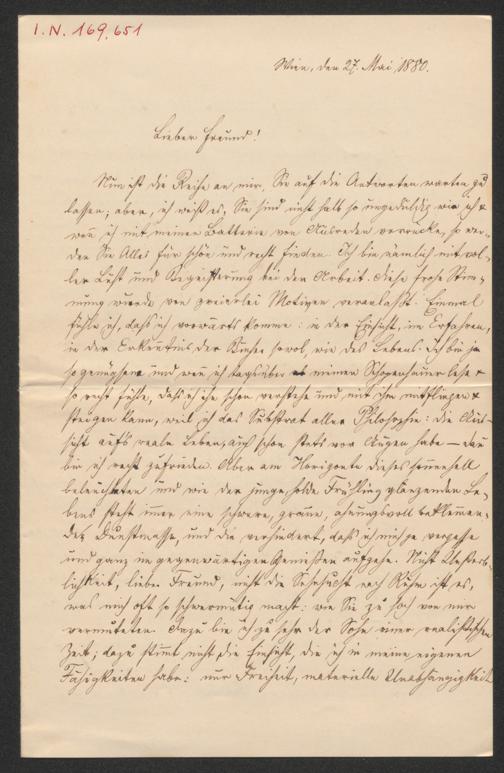 I.N. 169.651
Wien, den 27. Mai 1880.
Lieber Freund!
Nun ist die Reihe an mir, Sie auf die Antworten warten zu
lassen; aber, ich weiß es, Sie sind nicht halb so ungeduldig wie ich &
wenn ich mit meinen Batterien von Ausreden vorrücke, so wer-
den Sie Alles für schön und recht finden. Ich bin nämlich mit vol-
ler Lust und Begeisterung bei der Arbeit. Diese frohe Stim-
mung wurde von zweierlei Motiven veranlaßt: Einmal
fühle ich, daß ich vorwärts komme: in der Einsicht, im Erfahren,
in der Erkenntnis der Kunst sowol, wie des Lebens. Ich bin ja
so genügsam und wenn ich tagsüber meinen Schopenhauer lese &
so recht fühle, daß ich ihn schon verstehe und mit ihm mitfliegen &
steigen kann, weil ich das Substrat aller Philosophie: die Aus-
sicht aufs reale Leben, auch schon stets vor Augen habe — dann
bin ich recht zufrieden. Aber am Horizonte dieses sonnenhell
beleuchteten und wie der junge, holde Frühling glänzenden Le-
bens steht immer eine schwere, graue, ahnungsvoll beklemmen-
de Dunstmasse, und die verhindert, daß ich mich vergesse
und ganz im gegenwärtigen Genießen aufgehe. Nicht Unsterb-
lichkeit, lieber Freund, nicht die Sehnsucht nach Ruhm ist es,
was mich oft so schwermütig macht: wie Sie zu hoch von mir
vermuteten. Dazu bin ich zu sehr der Sohn einer realistischen
Zeit; dazu stimmt nicht die Einsicht, die ich in meine eigenen
Fähigkeiten habe: nur Freiheit, materielle Unabhängigkeit